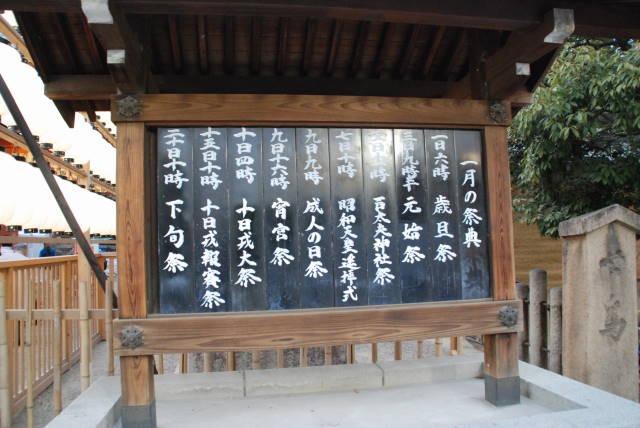 一月の祭典
一日六時 歳旦祭
三日九時半 元始祭
五日十時 百太夫神社祭
七日十時 昭和天皇遥拝式
九日九時 成人の日祭
九日十六時 宵宮祭
十日四時 十日戎大祭
十五日十時 十日戎報賽祭
二十日十時 下旬祭